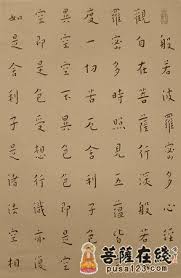 般若波羅蜜多心經
觀自在菩薩行深般若波
羅蜜多時照見五蘊皆空
度一切苦厄舍利子色不
異空空不異色色即是空
空即是色受想行識亦復
如是舍利子是諸法空相
菩萨在线
pusa123.com